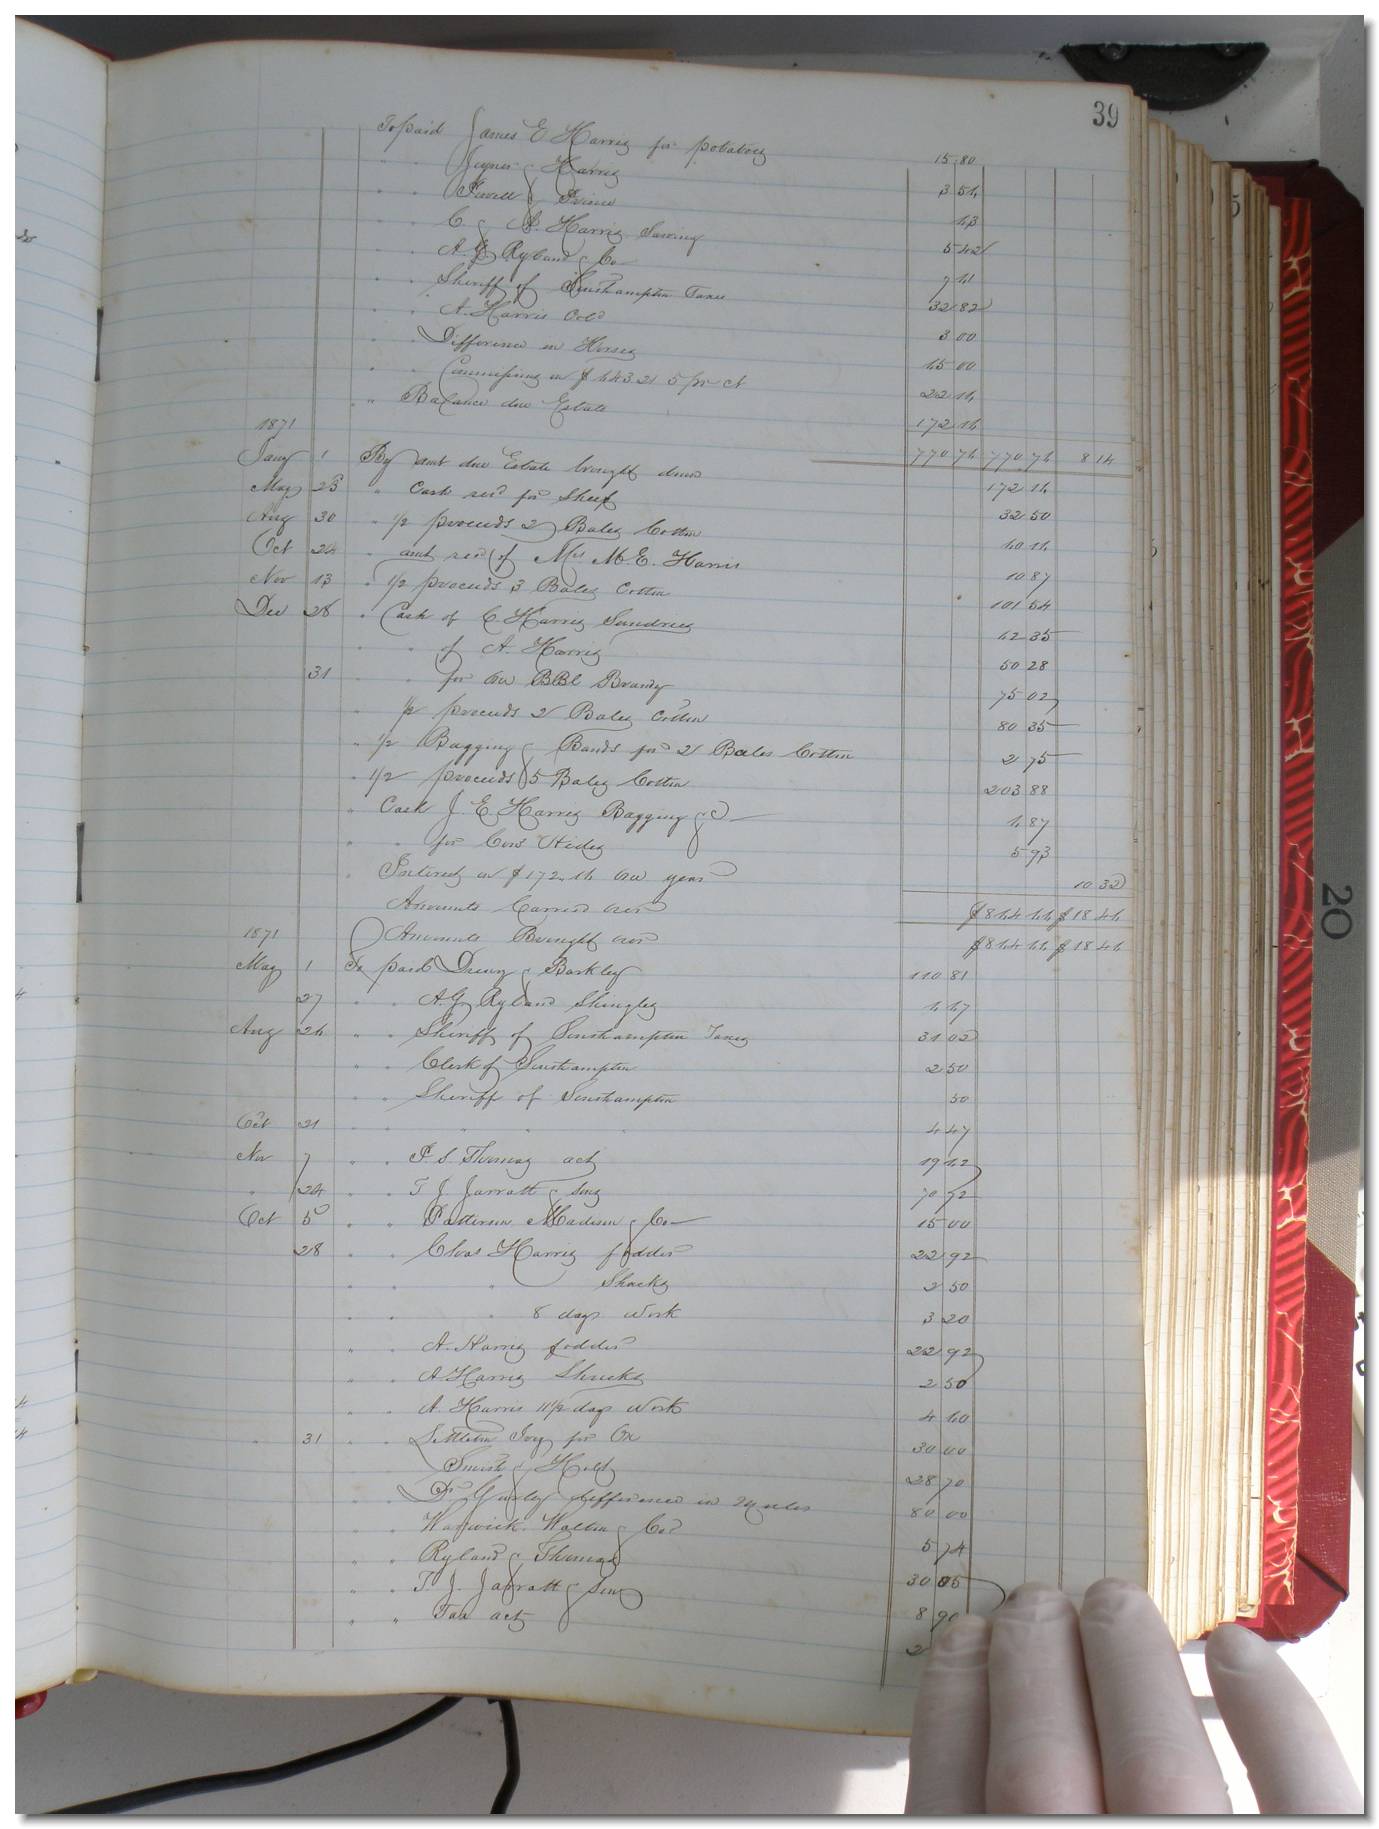 39
To paid James E Harris for potatoes 15 80
" " Joyner & Harris 3 54
" " Prince
" " C. & A. Harris Sawing 5 42
" " A. G. Ryland & Co
" " Sheriff of Southampton Taxes 32 82
" " A. Harris 3 00
" " Difference in Horses 15 00
" " Commissions on $443.21 5 pr ct 22 14
" " Balance due Estate 172 14
1871 770 74 770 74 8 14
Jany 1 By amt due Estate brought down 172 14
May 23 " Cash recd for Sheep 32 50
Aug 30 " 1/2 proceeds 2 Bales Cotton
Oct 24 " amt recd of Mrs M. E. Harris 10 87
Nov 13 " 1/2 proceeds 3 Bales Cotton 101 54
Dec 28 " Cash of C Harris Sundries 42 35
" " of A. Harris 50 28
31 " " for one BBl Brandy 75 02
" 1/2 proceeds 2 Bales Cotton 80 35
" 1/2 Bagging & Bands for 2 Bales Cotton 2 75
" 1/2 proceeds 5 Bales Cotton 203 88
" Cash J. E. Harris Bagging &c 4 87
" " for Cow Hides 5 93
" Interest on $172.14 one year 10 32
Amounts Carried over $844 44 $18 46
1871 Amounts Brought over $844 44 $18 46
May 1 To paid Drewry & Barkley 110 81
27 " " A. G. Ryland Shingles 4 47
Aug 24 " " Sheriff of Southampton Taxes 31 02
" " Clerk of Southampton 2 50
" " Sheriff of Southampton 50
Oct 21 " " " " " 4 47
Nov 7 " " P. S. Thomas act 19 42
" 24 " " T. J. Jarratt & Sons 70 92
Oct 5 " " Patterson Madison & Co 15 00
28 " " Chas Harris fodder 22 92
" " " Shucks 2 50
" " " 8 days work 3 20
" " A. Harris fodder 22 92
" " A Harris Shucks 2 50
" " A. Harris 11 1/2 days work 4 60
" 31 " " Littleton Ivy for Ox 30 00
" " Smith & Holt 28 70
" " Dr Gurley difference in Mules 80 00
" " Warwick Walton & Co 5 74
" " Ryland & Thomas 30 05
" " T. J. Jarratt & Sons 8 90
" " Tax act 2